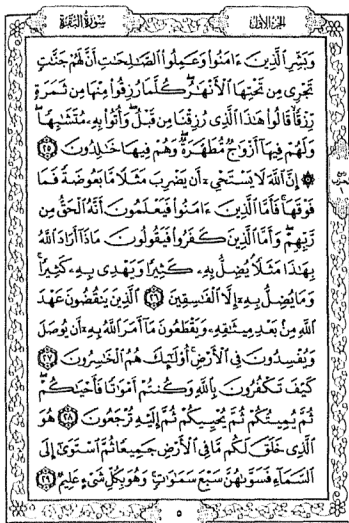 الجزء الأول سورة البقرة
وَبَشِّرِ الَّذِينَ ءَامَنُوا وَعَمِلُوا الصَّالِحَاتِ أَنَّ لَهُمْ جَنَّاتٍ
تَجْرِي مِن تَحْتِهَا الْأَنْهَارُ كُلَّمَا رُزِقُوا مِنْهَا مِن ثَمَرَةٍ
رِّزْقًا قَالُوا هَٰذَا الَّذِي رُزِقْنَا مِن قَبْلُ وَأُتُوا بِهِ مُتَشَابِهًا
وَلَهُمْ فِيهَا أَزْوَاجٌ مُّطَهَّرَةٌ وَهُمْ فِيهَا خَالِدُونَ ٢٥
۞ إِنَّ اللَّهَ لَا يَسْتَحْيِ أَن يَضْرِبَ مَثَلًا مَّا بَعُوضَةً فَمَا
فَوْقَهَا فَأَمَّا الَّذِينَ ءَامَنُوا فَيَعْلَمُونَ أَنَّهُ الْحَقُّ مِن
رَّبِّهِمْ وَأَمَّا الَّذِينَ كَفَرُوا فَيَقُولُونَ مَاذَا أَرَادَ اللَّهُ
بِهَٰذَا مَثَلًا يُضِلُّ بِهِ كَثِيرًا وَيَهْدِي بِهِ كَثِيرًا
وَمَا يُضِلُّ بِهِ إِلَّا الْفَاسِقِينَ ٢٦ الَّذِينَ يَنقُضُونَ عَهْدَ
اللَّهِ مِن بَعْدِ مِيثَاقِهِ وَيَقْطَعُونَ مَا أَمَرَ اللَّهُ بِهِ أَن يُوصَلَ
وَيُفْسِدُونَ فِي الْأَرْضِ أُولَٰئِكَ هُمُ الْخَاسِرُونَ ٢٧
كَيْفَ تَكْفُرُونَ بِاللَّهِ وَكُنتُمْ أَمْوَاتًا فَأَحْيَاكُمْ
ثُمَّ يُمِيتُكُمْ ثُمَّ يُحْيِيكُمْ ثُمَّ إِلَيْهِ تُرْجَعُونَ ٢٨ هُوَ
الَّذِي خَلَقَ لَكُم مَّا فِي الْأَرْضِ جَمِيعًا ثُمَّ اسْتَوَىٰ إِلَى
السَّمَاءِ فَسَوَّاهُنَّ سَبْعَ سَمَاوَاتٍ وَهُوَ بِكُلِّ شَيْءٍ عَلِيمٌ ٢٩
٥